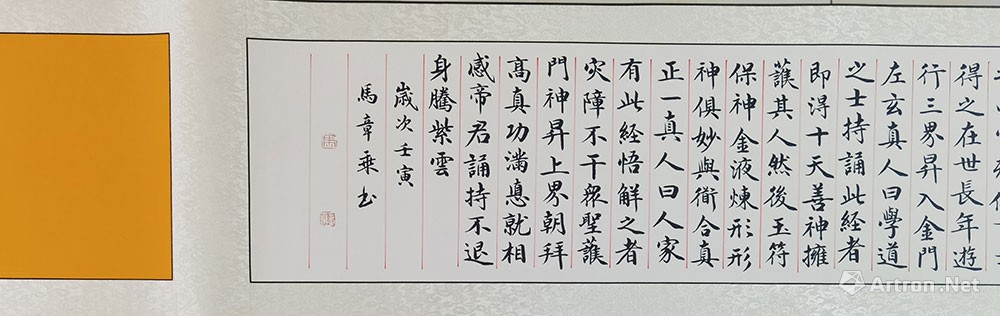 得之在世長年遊
行三界昇入金門
左玄真人曰學道
之士持誦此經者
即得十天善神擁
䕶其人然後玉符
保神金液煉形形
神俱妙與衜合真
正一真人曰人家
有此経悟解之者
灾障不干衆聖䕶
門神昇上界朝拜
高真功滿悳就相
感帝君誦持不退
身騰紫雲
歲次壬寅
馬章乘书
Artron.Net